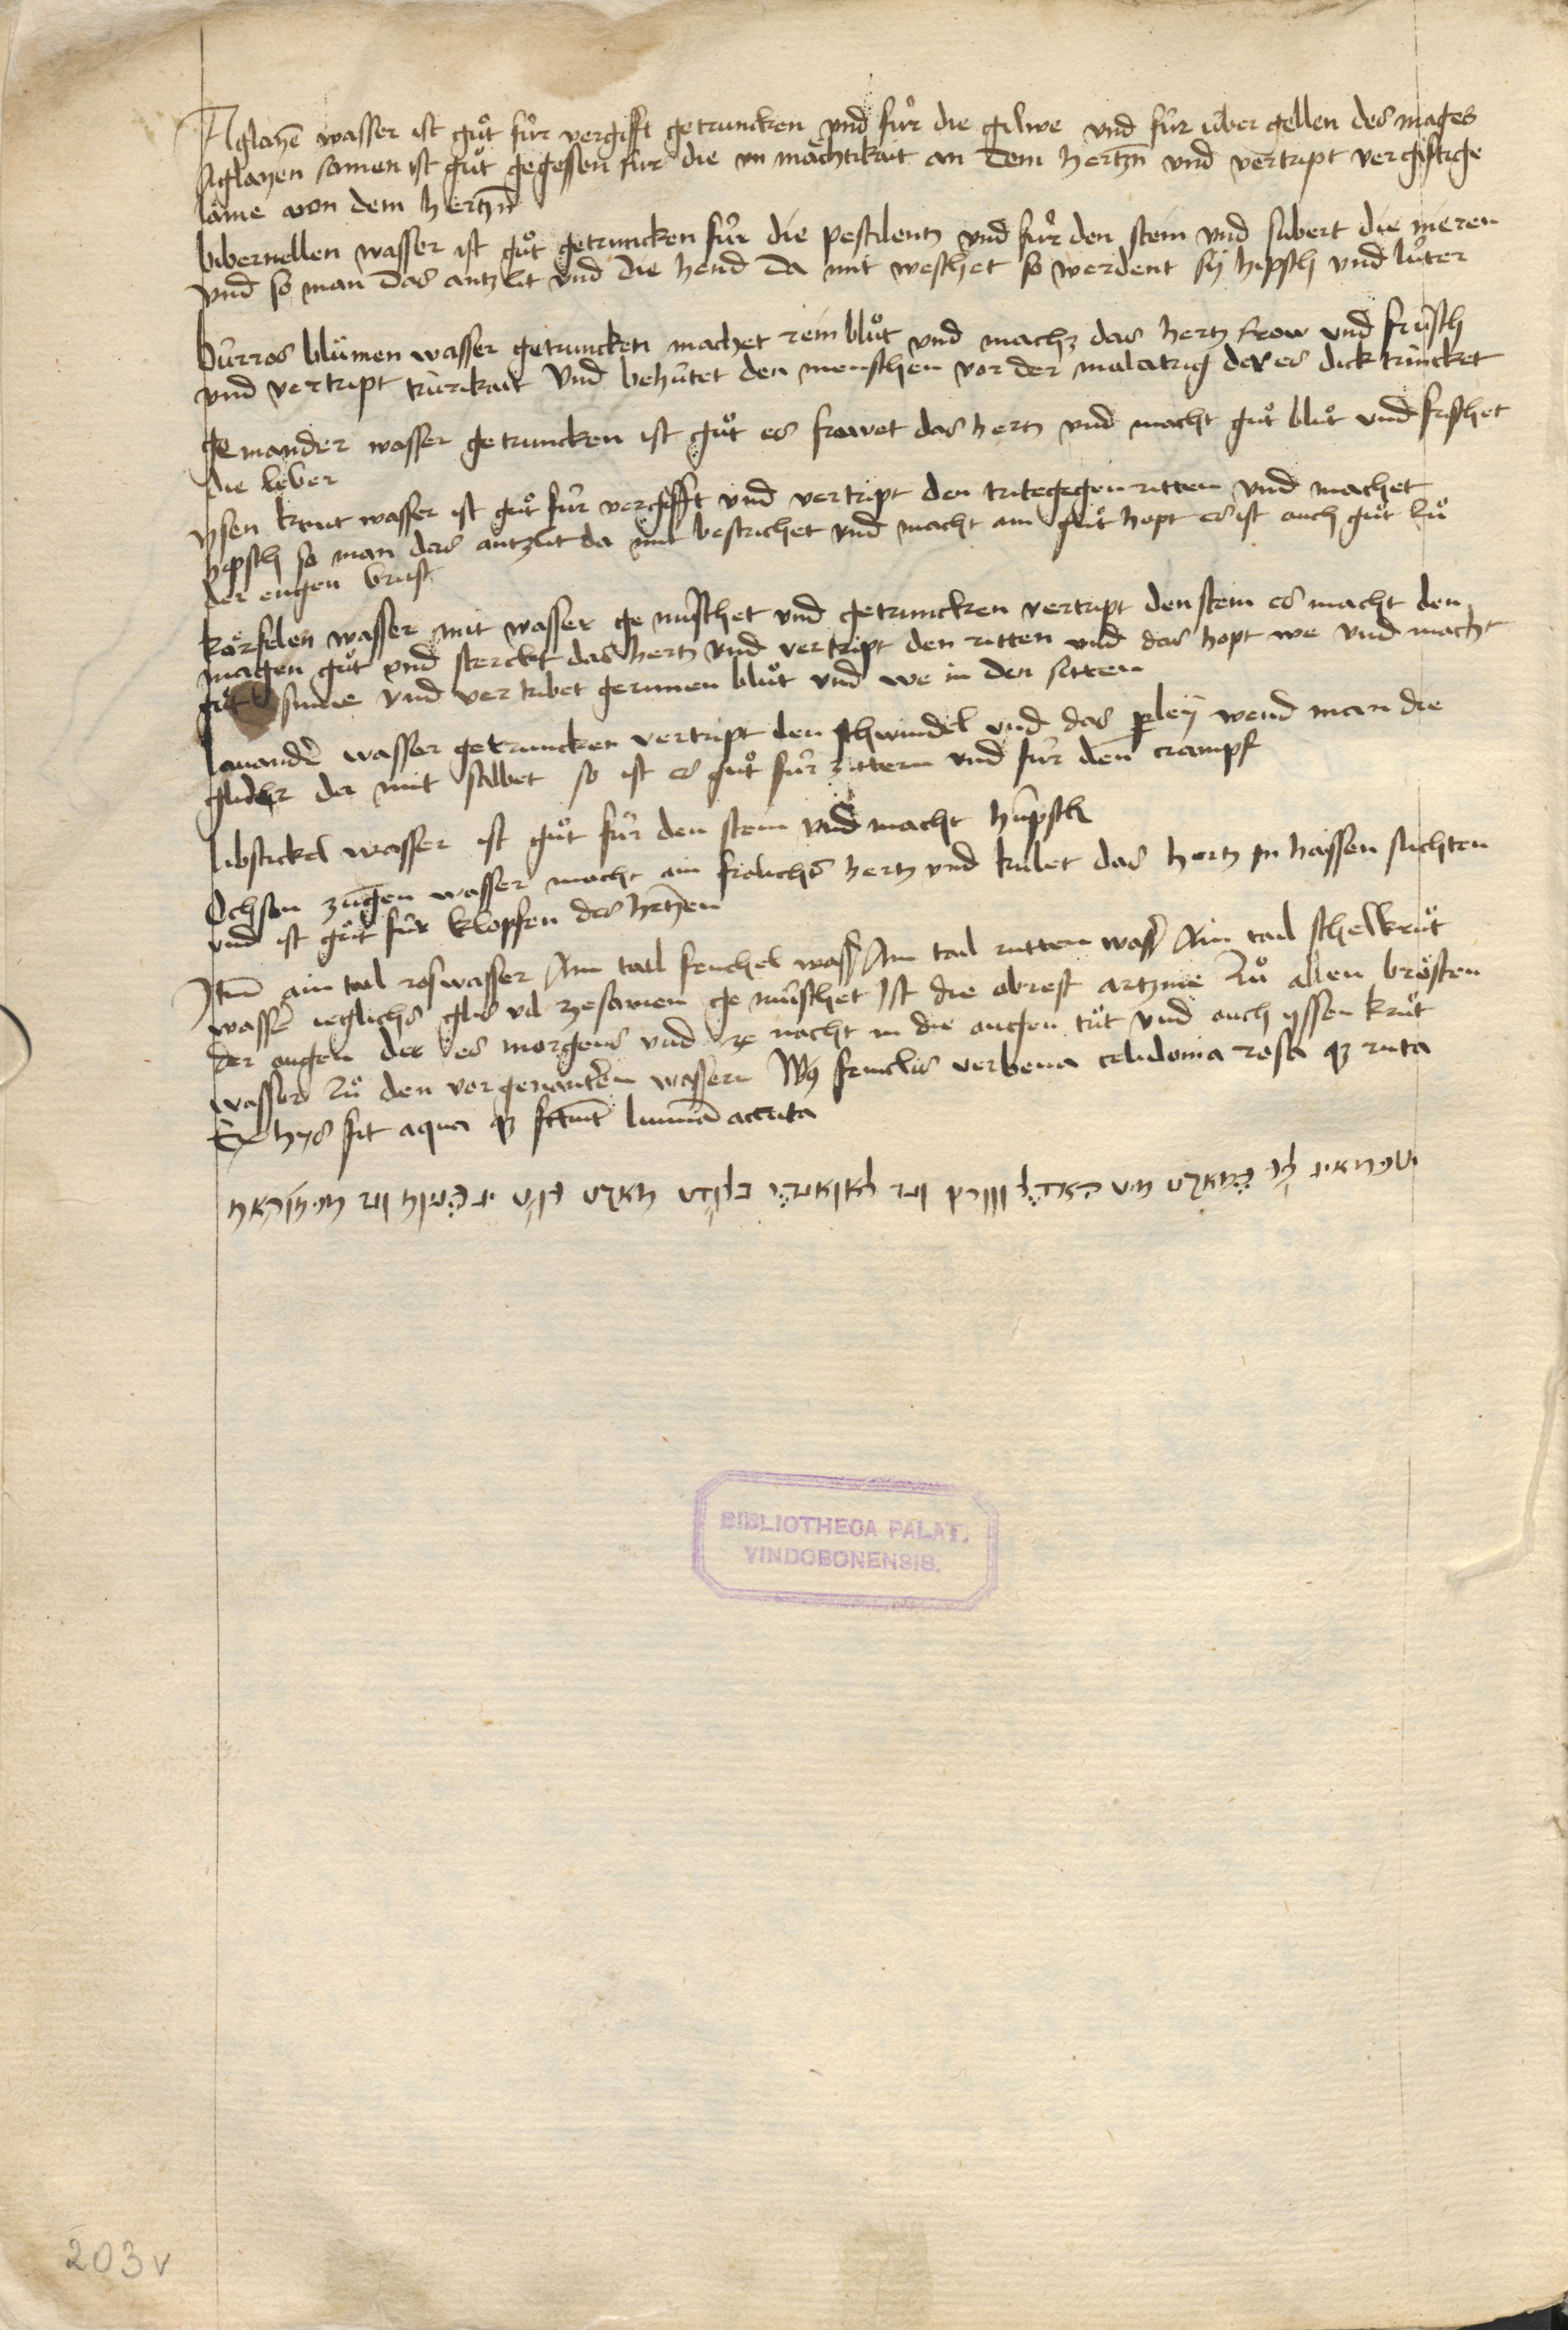 Aglayē wasser ist gůt fúr vergifft getruncken vnd fúr die gilwe vnd fúr úber gellen des mages
Aglayen somen ist gůt gegessen fúr die vn mächtikait an dem hertzn̄ vnd vertript vergiftige
läme von dem hertzn̄
bibernellen wasser ist gůt getruncken fúr die pestilentz vnd fúr den stein vnd subert die nieren
vnd so man das antzlit vnd die hend da mit weschet so werdent sÿ hipsch vnd luter
burros blůmen wasser getruncken machet rein blůt vnd machz das hertz frow vnd frúsch
vnd vertript trurikait vnd behůtet den menschen vor der malatrig der es dick trincket
ge mander wasser getruncken ist gůt es frowet das hertz vnd macht gůt blůt vnd frischet
die leber
ysen krut wasser ist gůt fúr vergifft vnd vertript den tritegegen ritten vnd machet
hipsch so man das antzlit da mit bestrichet vnd macht ain gůt hopt es ist auch gůt zů
der engen brust
körfelen wasser mit wasser ge mischet vnd getruncken vertript den stein es macht den
magen gůt vnd sterckt das hertz vnd vertript den ritten vnd das hopt we vnd macht
gůt sinne vnd ver tribet gerunnen blůt vnd we in den sitten
lauander wasser getruncken vertript den schwindel vnd das perleÿ wend man die
glider da mit salbet so ist es gůt fúr zittern vnd fúr den crampf
libstickel wasser ist gůt fúr den stein vnd macht húpsch
Ochsen zungen wasser macht ain frolichs hertz vnd kúlet das hertz in haissen suchten
vnd ist gůt fúr klopfen des hertzen
Itm̄ ain tail roswasser Ain tail fenchel wass̄ Ain tail rutten wass̄ Ain tail schelkrůt
wasser ieglichs glis vil zesamen ge múschet Ist die obrest artznie zů allen brösten
der augen der es morgens vnd ze nacht in die augen tůt vnd auch yssen krůt
wasser zů den vorgenanten wassern feniclis verbena celidonia rosa qz ruta
Ex hys fit aqua qz lumina acuta
BIBLIOTHECA PALAT.
VINDOBONENSIS.
203v